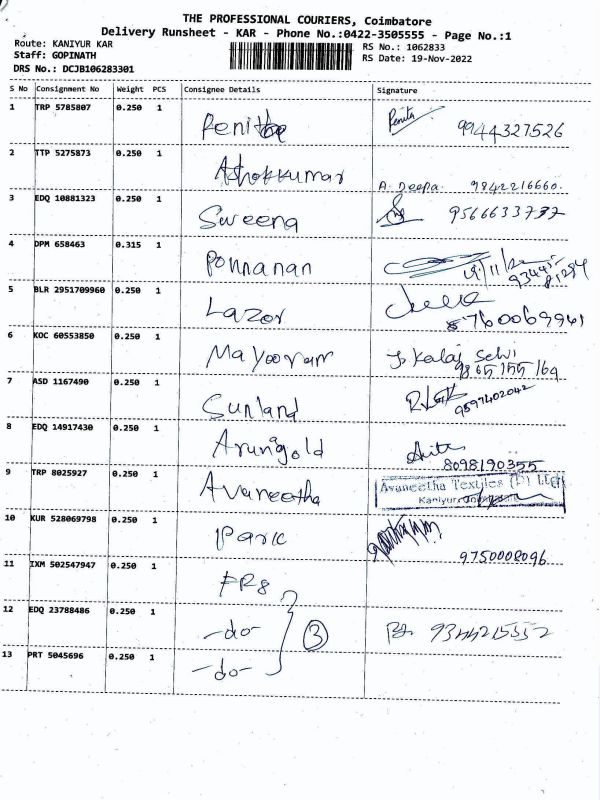 THE PROFESSIONAL COURIERS, Coimbatore
Delivery Runsheet - KAR - Phone No.:0422-3505555 - Page No.:1
Route: KANIYUR KAR RS No.: 1062833
Staff: GOPINATH RS Date: 19-Nov-2022
DRS No.: DCJB106283301
S No Consignment No Weight PCS Consignee Details Signature
1 TRP 5785807 0.250 1 9944327526
2 TTP 5275873 0.250 1 Ashokkumar A. Deepa. 9842216660.
3 EDQ 10881323 0.250 1 Sweena 9566633737
4 DPM 658463 0.315 1 Ponnanan 19/11/22
5 BLR 2951709960 0.250 1 Lazor 8760069961
6 KOC 60553850 0.250 1 Mayooram J. Kalai Selvi
9865155169
7 ASD 1167490 0.250 1 Sunland 9597402042
8 EDQ 14917430 0.250 1 Arungold
8098190355
9 TRP 8025927 0.250 1 Avaneetha Avaneetha Textiles (P) Ltd
10 KUR 528069798 0.250 1 Paric 9750008096
11 IXM 502547947 0.250 1 FRs
12 EDQ 23788486 0.250 1 -do- 3 9344215552
13 PRT 5045696 0.250 1 -do-